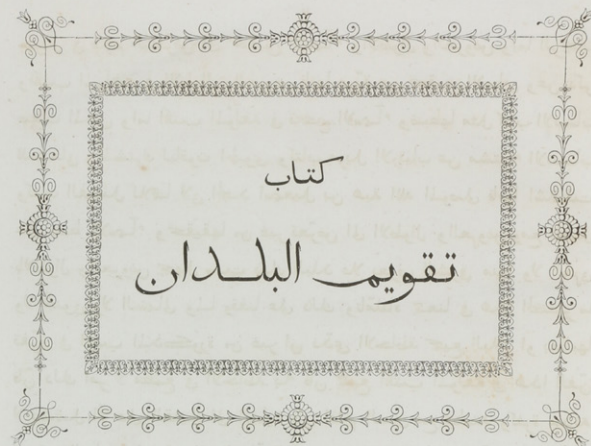 كتاب
تقويم البلدان